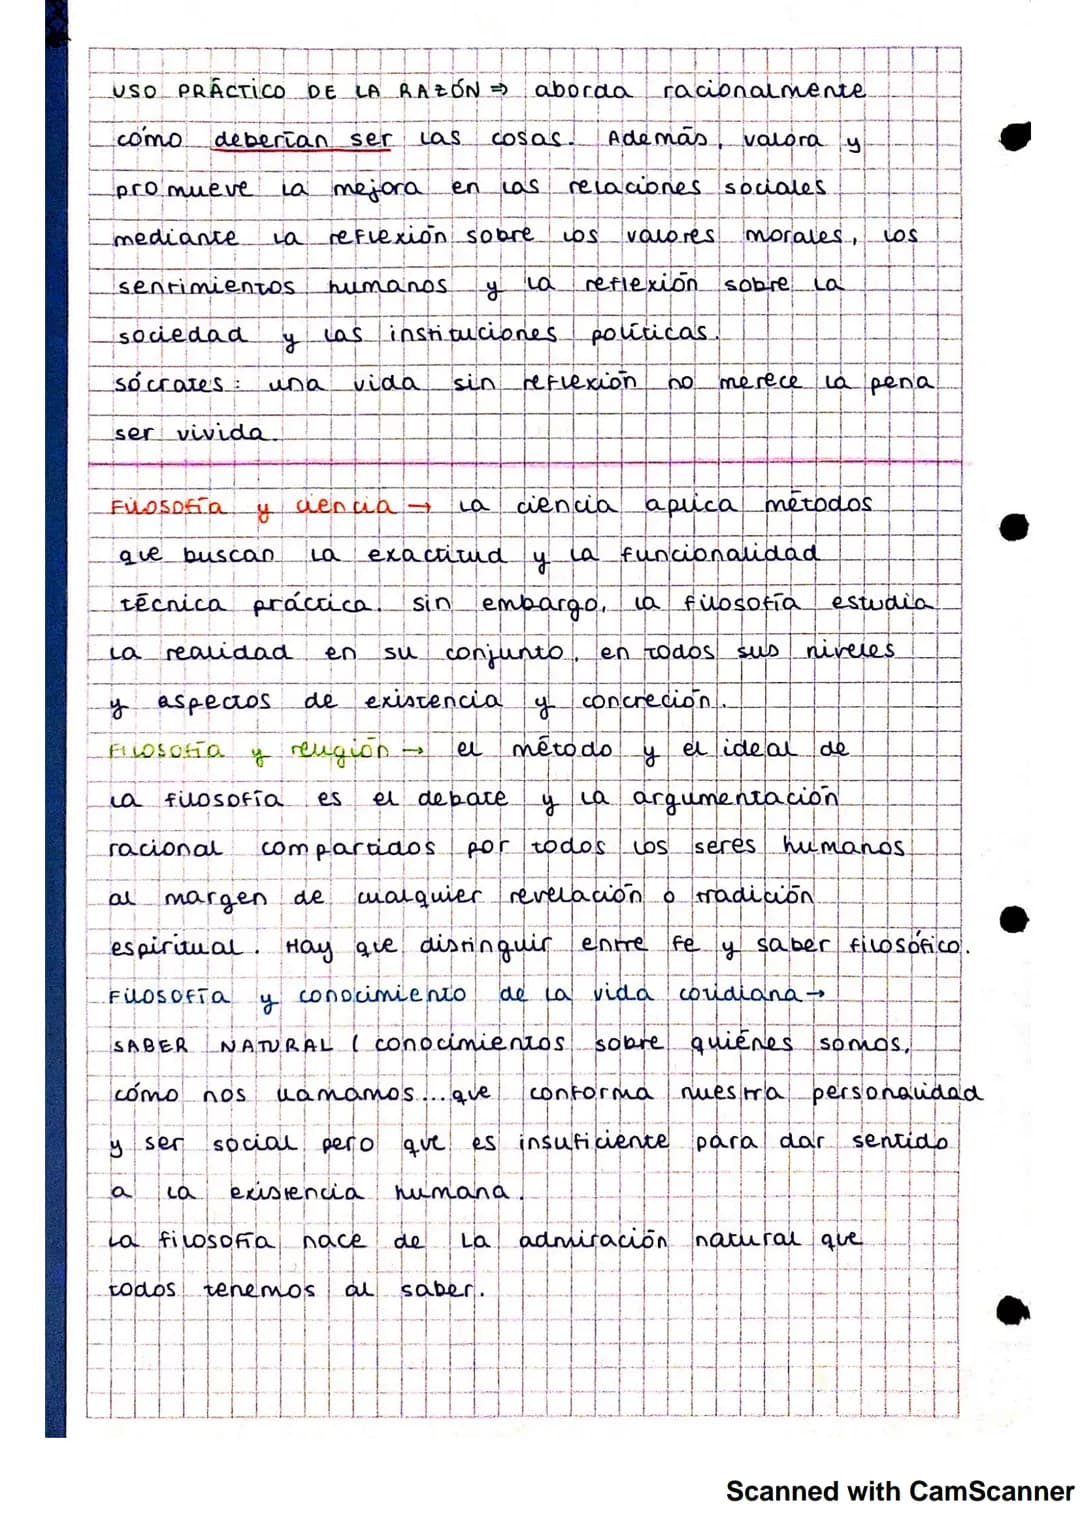 USO PRÁCTICO DE LA RAZÓN ⇒ aborda racionalmente
cómo deberían ser las cosas. Además, valora y
promueve la mejora en las relaciones sociales
mediante la reflexión sobre los valores morales, los
sentimientos humanos y la reflexión sobre la
sociedad y las instituciones políticas.
sócrates: una vida sin reflexión no merece la pena
ser vivida.
Filosofía y ciencia → la ciencia aplica métodos
que buscan la exactitud y la funcionalidad
técnica práctica. sin embargo, la filosofía estudia
la realidad en su conjunto, en todos sus niveles
y aspectos de existencia y concreción.
Filosofía y religión → el método y el ideal de
la filosofía es el debate y la argumentación
racional compartidos por todos los seres humanos
al margen de cualquier revelación o tradición
espiritual. Hay que distinguir entre fe y saber filosófico.
Filosofía y conocimiento de la vida cotidiana →
SABER NATURAL ( conocimientos sobre quiénes somos,
cómo nos llamamos... que conforma nuestra personalidad
y ser social pero que es insuficiente para dar sentido
a la existencia humana.
La filosofía nace de la admiración natural que
todos tenemos al saber.
Scanned with CamScanner